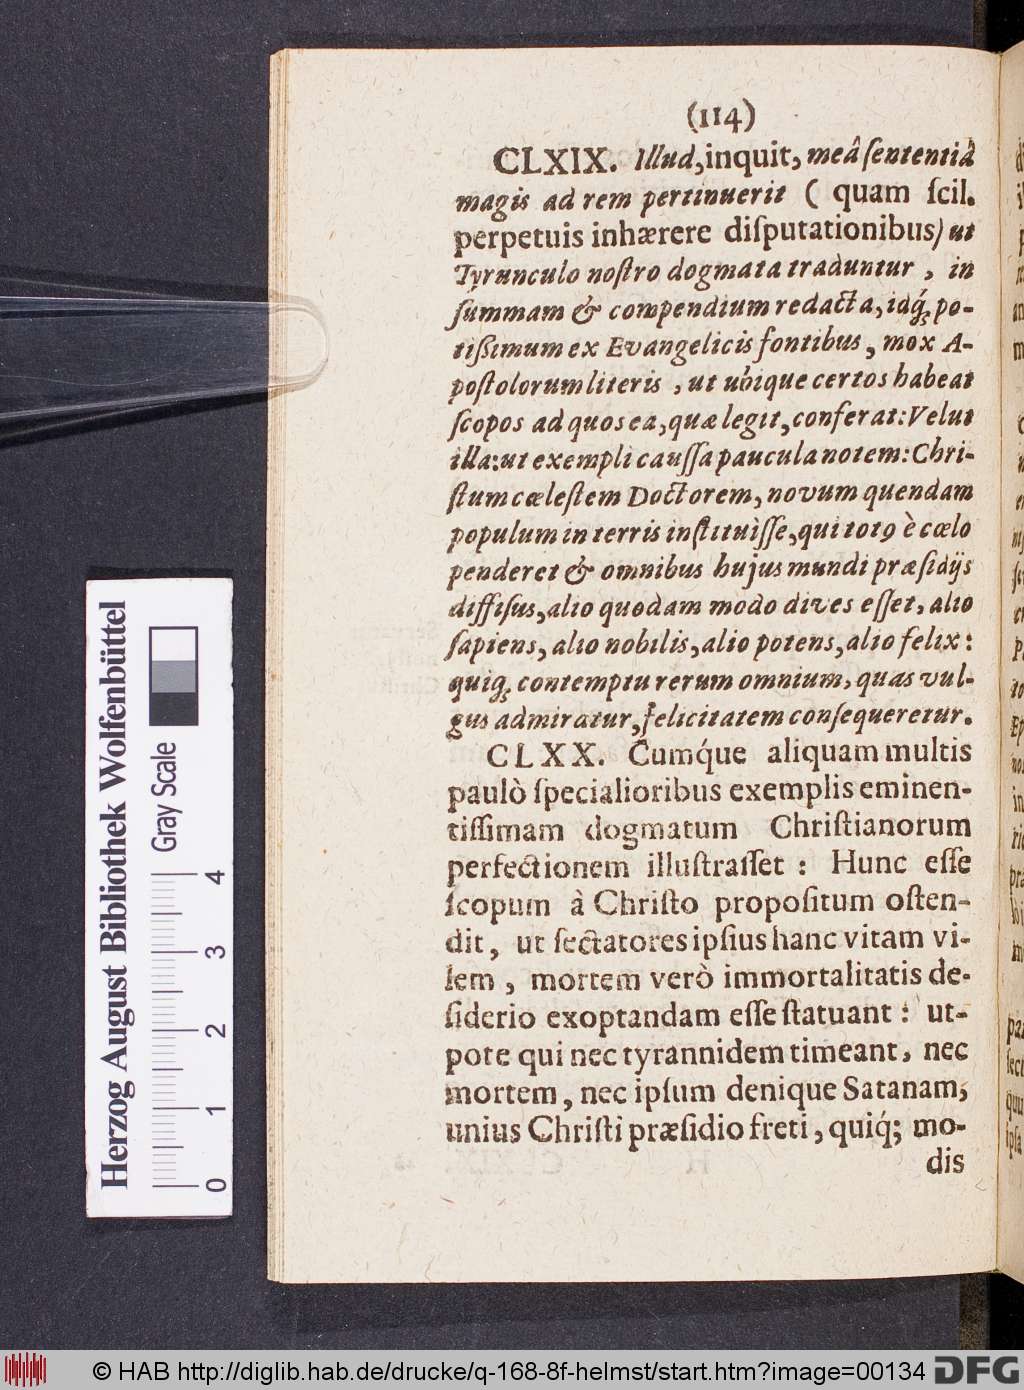 (114)
CLXIX. Illud, inquit, meâ ſententiâ
magis ad rem pertinuerit ( quam ſcil.
perpetuis inhærere diſputationibus) ut
Tyrunculo noſtro dogmata traduntur, in
ſummam & compendium redacta, idq́; po-
tißimum ex Evangelicis fontibus, mox A-
poſtolorum literis, ut ubique certos habeat
ſcopos ad quos ea, quæ legit, conferat: Velut
illa: ut exempli cauſſa paucula notem: Chri-
ſtum cœleſtem Doctorem, novum quendam
populum in terris inſtituiſſe, qui totꝰ è cœlo
penderet & omnibus hujus mundi præſidijs
diffiſus, alio quodam modo dives eſſet, alio
ſapiens, alio nobilis, alio potens, alio felix:
quiq; contemptu rerum omnium, quas vul-
gus admiratur, felicitatem conſequeretur.
CLXX. Cumq́ue aliquam multis
paulò ſpecialioribus exemplis eminen-
tiſſimam dogmatum Chriſtianorum
perfectionem illuſtraſſet : Hunc eſſe
ſcopum à Chriſto propoſitum oſten-
dit, ut ſectatores ipſius hanc vitam vi-
lem, mortem verò immortalitatis de-
ſiderio exoptandam eſſe ſtatuant: ut-
pote qui nec tyrannidem timeant, nec
mortem, nec ipſum denique Satanam,
unius Chriſti præſidio freti, quiq́; mo-
dis
Herzog August Bibliothek Wolfenbüttel
Gray Scale
0 1 2 3 4
© HAB http://diglib.hab.de/drucke/q-168-8f-helmst/start.htm?image=00134
DFG